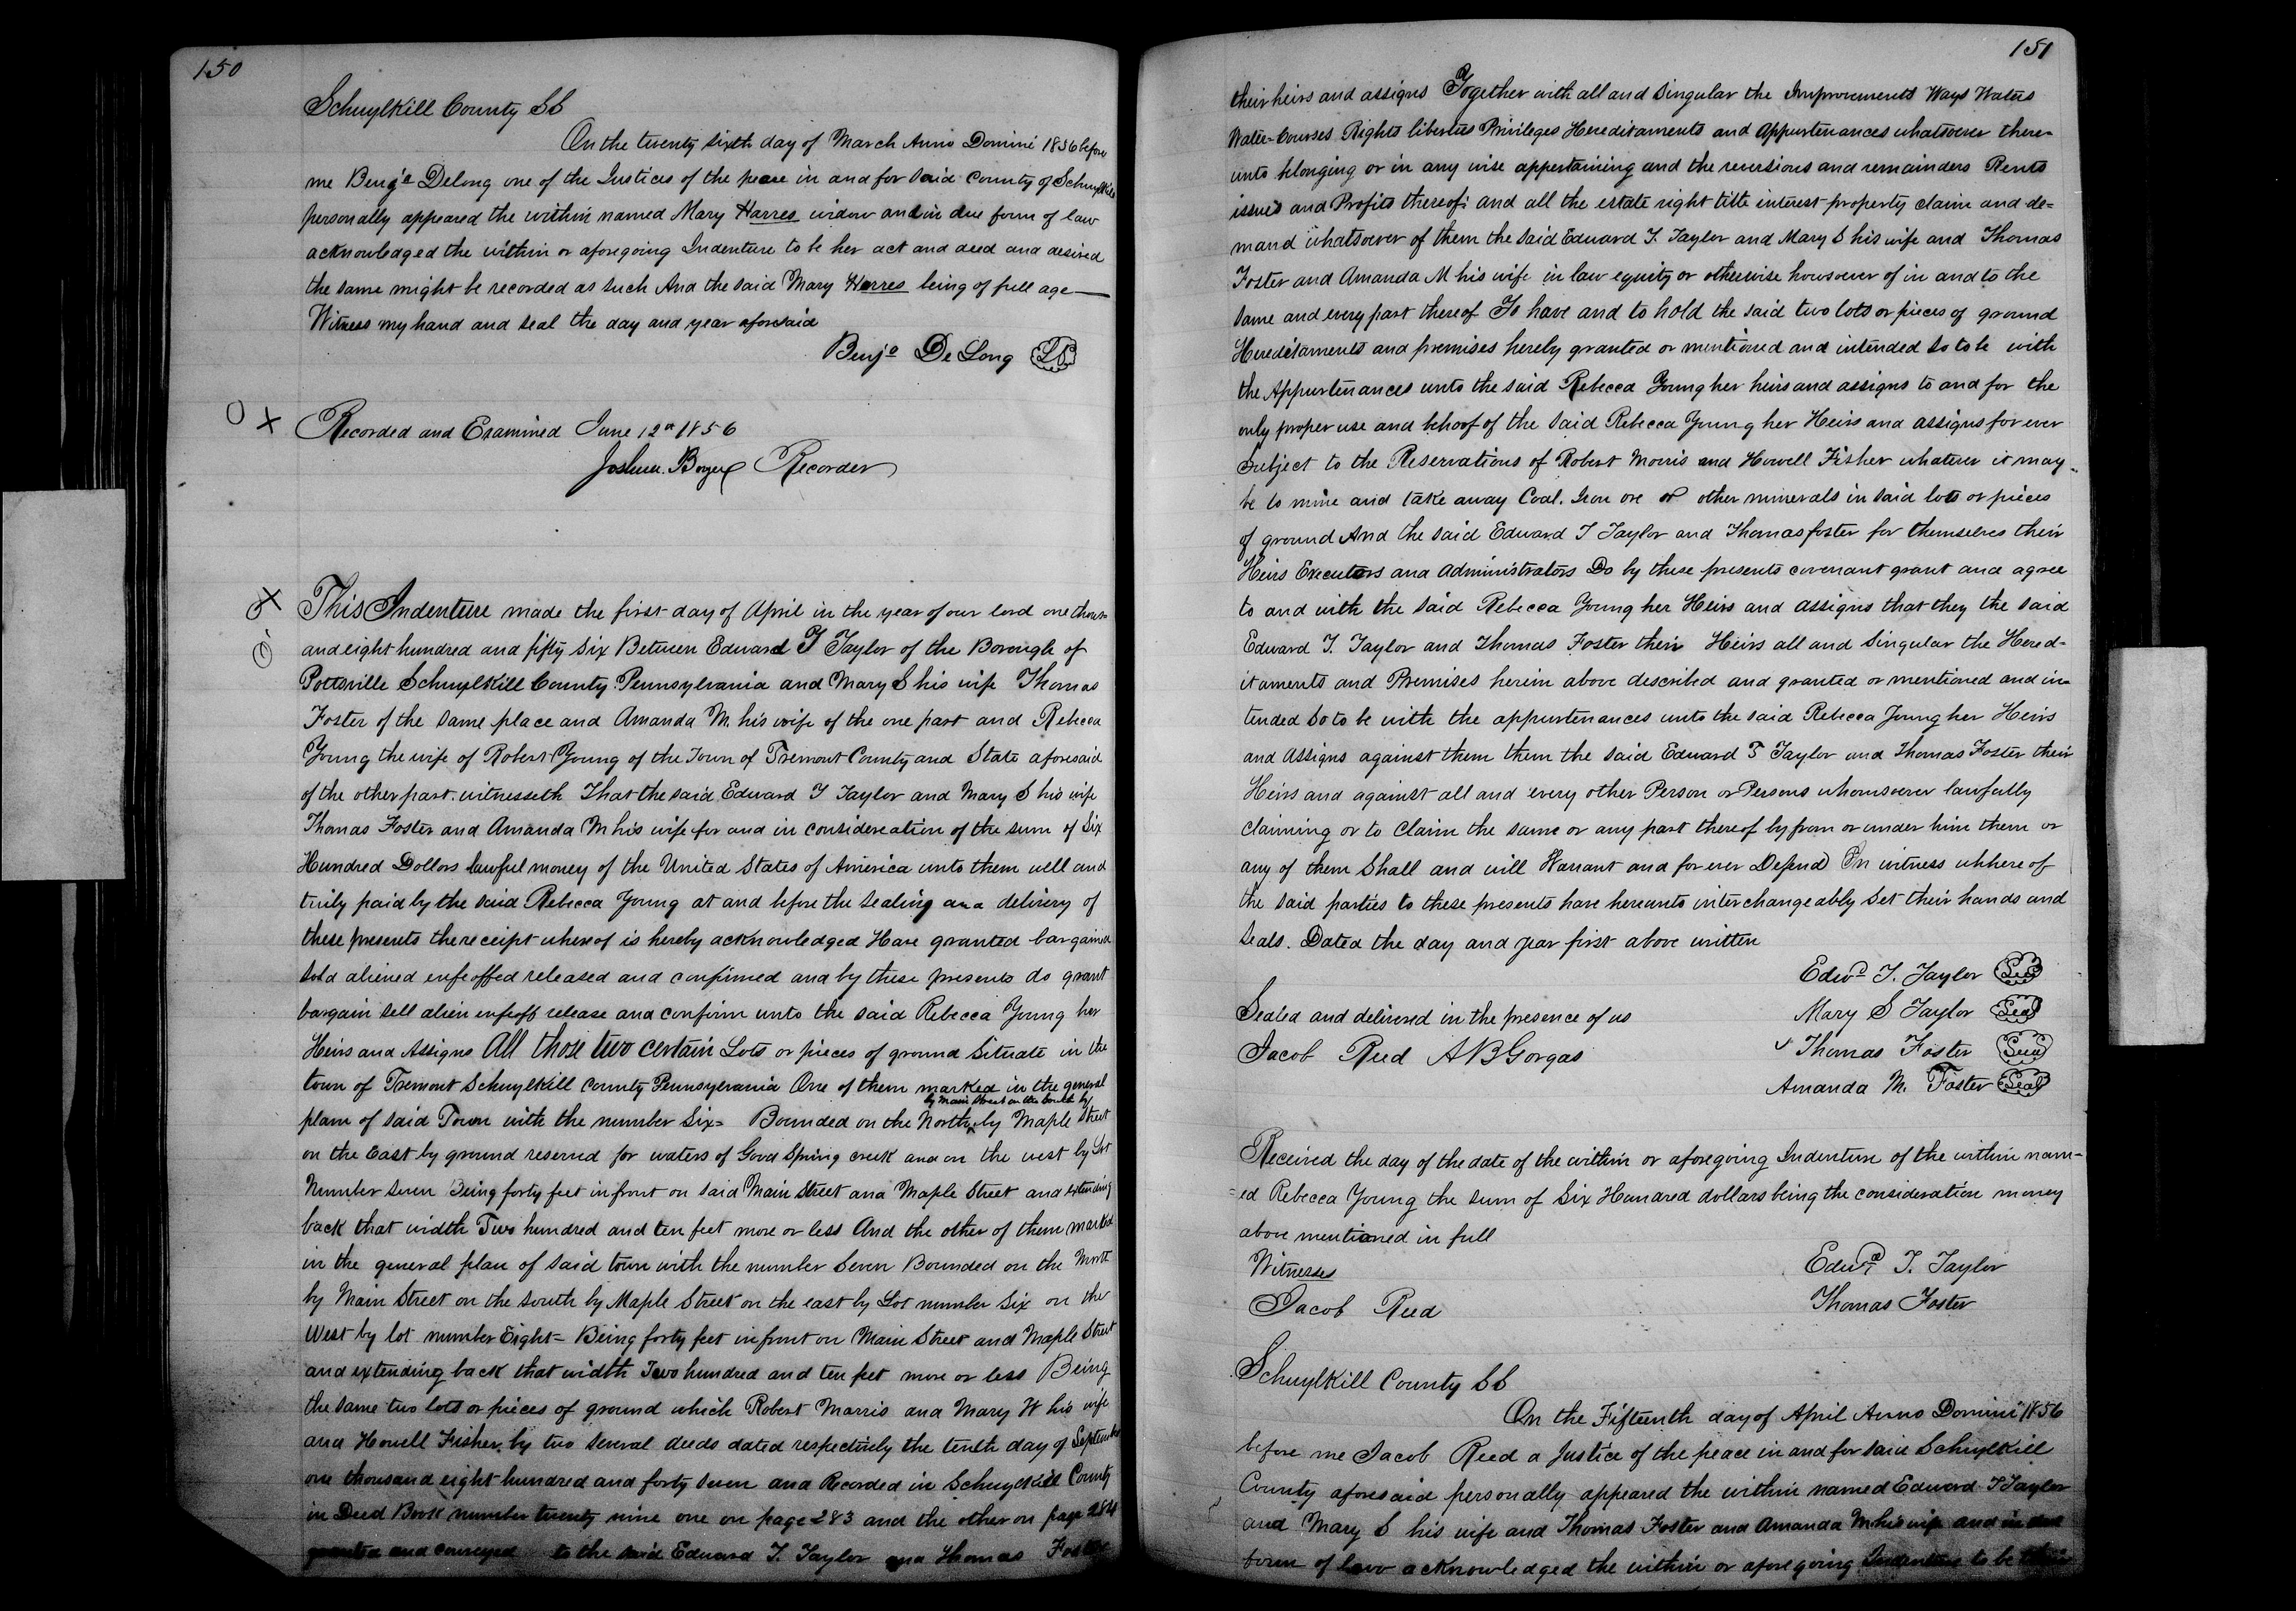 150
Schuylkill County SS
On the twenty sixth day of March Anno Domini 1856 before
me Benj'a Delong one of the Justices of the peace in and for said County of Schuylkill
personally appeared the within named Mary Harres widow and in due form of law
acknowledged the within or aforegoing Indenture to be her act and deed and desired
the same might be recorded as such And the said Mary Harres being of full age
Witness my hand and seal the day and year aforesaid
Benj'a De Long LS
Recorded and Examined June 12th 1856
Joshua Boyer Recorder
This Indenture made the first day of April in the year of our lord one thous-
and eight hundred and fifty six Between Edward T Taylor of the Borough of
Pottsville Schuylkill County Pennsylvania and Mary S his wife Thomas
Foster of the same place and Amanda M. his wife of the one part and Rebecca
Young the wife of Robert Young of the Town of Tremont County and State aforesaid
of the other part. witnesseth That the said Edward T Taylor and Mary S his wife
Thomas Foster and Amanda M his wife for and in consideration of the sum of Six
Hundred Dollars lawful money of the United States of America unto them well and
truly paid by the said Rebecca Young at and before the sealing and delivery of
these presents the receipt whereof is hereby acknowledged Have granted bargained
sold aliened enfeoffed released and confirmed and by these presents do grant
bargain sell alien enfeoff release and confirm unto the said Rebecca Young her
Heirs and Assigns All those two certain Lots or pieces of ground Situate in the
town of Tremont Schuylkill County Pennsylvania One of them marked in the general
by Main Street on the South by
plan of said Town with the number Six= Bounded on the North by Maple Street
on the East by ground reserved for waters of Good Spring creek and on the west by Lot
Number Seven Being forty feet in front on said Main Street and Maple Street and extending
back that width Two hundred and ten feet more or less And the other of them marked
in the general plan of said town with the number Seven Bounded on the North
by Main Street on the South by Maple Street on the east by Lot number Six on the
West by lot number Eight= Being forty feet in front on Main Street and Maple Street
and extending back that width Two hundred and ten feet more or less Being
the same two lots or pieces of ground which Robert Morris and Mary W his wife
and Howell Fisher by two several deeds dated respectively the tenth day of September
one thousand eight hundred and forty seven and Recorded in Schuylkill County
in Deed Book number twenty nine one on page 283 and the other on page 284
granted and conveyed to the said Edward T. Taylor and Thomas Foster
151
their heirs and assigns Together with all and Singular the Improvements Ways Waters
Water=Courses Rights liberties Privileges Hereditaments and Appurtenances whatsoever there-
unto belonging or in any wise appertaining and the reversions and remainders Rents
issues and Profits thereof: and all the estate right title interest property claim and de=
mand whatsoever of them the said Edward T. Taylor and Mary S his wife and Thomas
Foster and Amanda M his wife in law equity or otherwise howsoever of in and to the
same and every part thereof To have and to hold the said two lots or pieces of ground
Hereditaments and premises hereby granted or mentioned and intended so to be with
the Appurtenances unto the said Rebecca Young her heirs and assigns to and for the
only proper use and behoof of the said Rebecca Young her Heirs and assigns for ever
Subject to the Reservations of Robert Morris and Howell Fisher whatever it may
be to mine and take away Coal. Iron ore or other minerals in said lots or pieces
of ground And the said Edward T Taylor and Thomas foster for themselves their
Heirs Executors and Administrators Do by these presents covenant grant and agree
to and with the said Rebecca Young her Heirs and assigns that they the said
Edward T. Taylor and Thomas Foster their Heirs all and Singular the Hered-
itaments and Premises herein above described and granted or mentioned and in-
tended so to be with the appurtenances unto the said Rebecca Young her Heirs
and Assigns against them them the said Edward T Taylor and Thomas Foster their
Heirs and against all and every other Person or Persons whomsoever lawfully
claiming or to claim the same or any part thereof by from or under him them or
any of them Shall and will Warrant and for ever Defend In witness whhere of
the said parties to these presents have hereunto interchangeably set their hands and
Seals. Dated the day and year first above written
Edwd T. Taylor Seal
Sealed and delivered in the presence of us Mary S Taylor Seal
Jacob Reed A B Gorgas Thomas Foster Seal
Amanda M. Foster Seal
Received the day of the date of the within or aforegoing Indenture of the within nam-
=ed Rebecca Young the sum of Six Hundred dollars being the consideration money
above mentioned in full
Witnesses Edwd T. Taylor
Jacob Reed Thomas Foster
Schuylkill County SS
On the Fifteenth day of April Anno Domini 1856
before me Jacob Reed a Justice of the peace in and for said Schuylkill
County aforesaid personally appeared the within named Edward T Taylor
and Mary S his wife and Thomas Foster and Amanda M his wife and in due
form of law acknowledged the within or aforegoing Indenture to be their